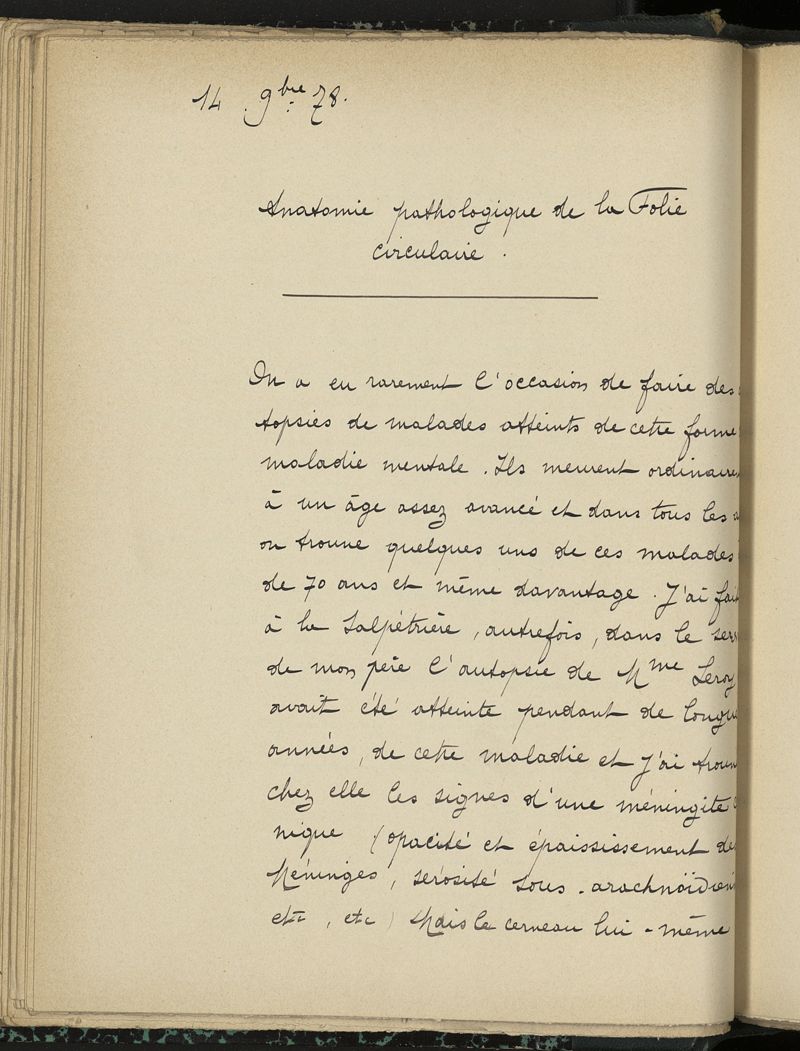 14 9bre 78.
Anatomie pathologique de la Folie
circulaire.
On a eu rarement l'occasion de faire des
topsies de malades atteints de cette forme
maladie mentale. Ils meurent ordinairem
à un âge assez avancé et dans tous les
on trouve quelques uns de ces malades
de 70 ans et même davantage. J'ai fait
à la Salpétrière, autrefois, dans le serv
de mon père l'autopsie de Mme Leroy
avait été atteinte pendant de longue
années, de cette maladie et j'ai trouv
chez elle les signes d'une méningite
nique (opacité et épaississement de
Méninges, sérosité sous-arachnoïdien
etc, etc) Mais le cerveau lui-même